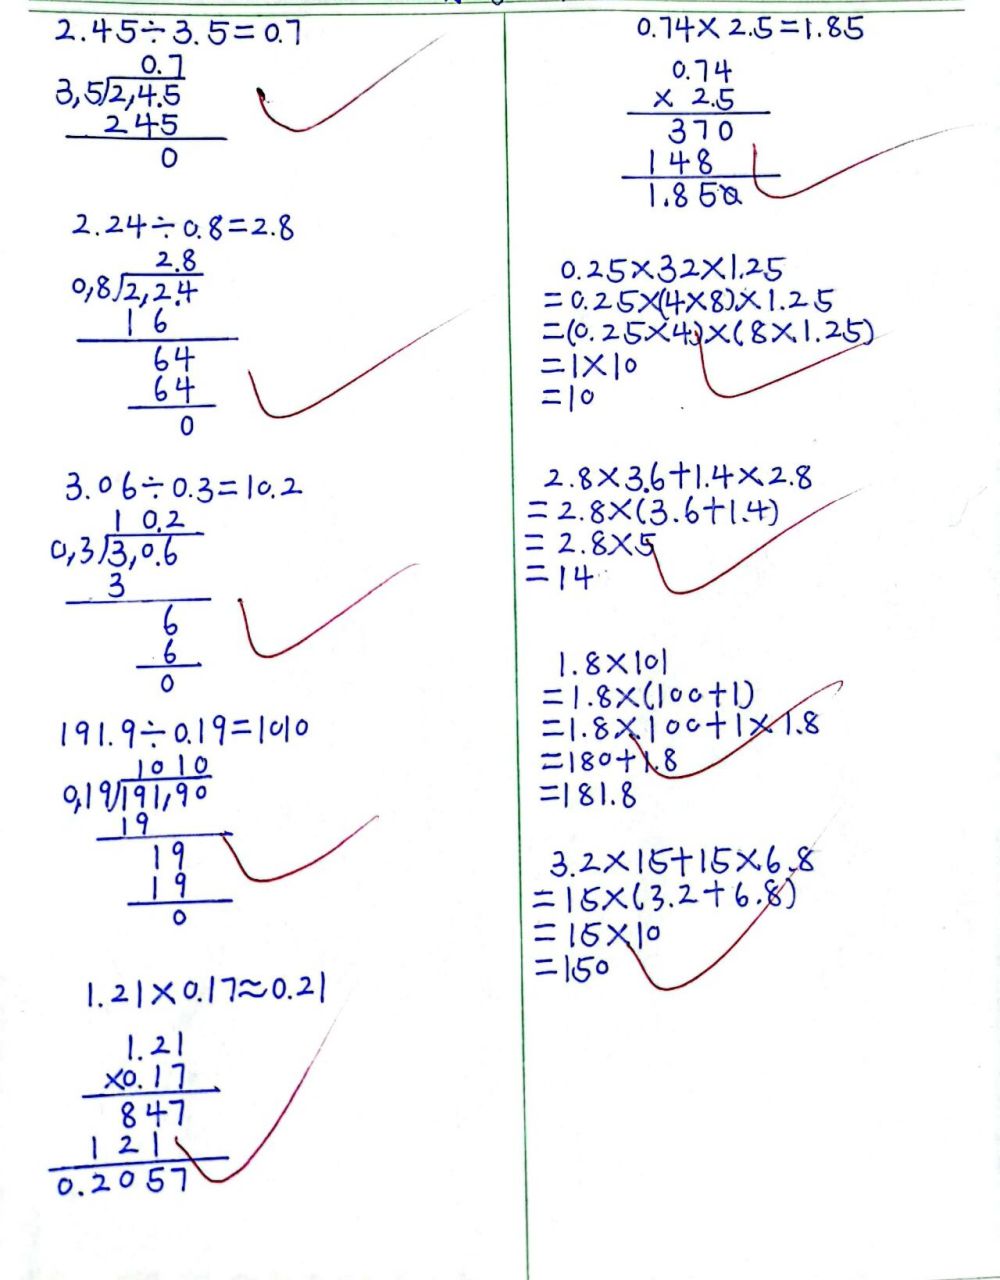 2.45÷3.5=0.7
0.7
3,5 2,4.5
245
0
2.24÷0.8=2.8
2.8
0,8 2,2.4
1 6
64
64
0
3.06÷0.3=10.2
1 0.2
0,3 3,0.6
3
6
6
0
191.9÷0.19=1010
1010
0,19 191,90
19
19
19
0
1.21×0.17≈0.21
1.21
×0.17
847
1 2 1
0.2057
0.74×2.5=1.85
0.74
× 2.5
370
148
1.850
0.25×32×1.25
=0.25×(4×8)×1.25
=(0.25×4)×(8×1.25)
=1×10
=10
2.8×3.6+1.4×2.8
=2.8×(3.6+1.4)
=2.8×5
=14
1.8×101
=1.8×(100+1)
=1.8×100+1×1.8
=180+1.8
=181.8
3.2×15+15×6.8
=15×(3.2+6.8)
=15×10
=150